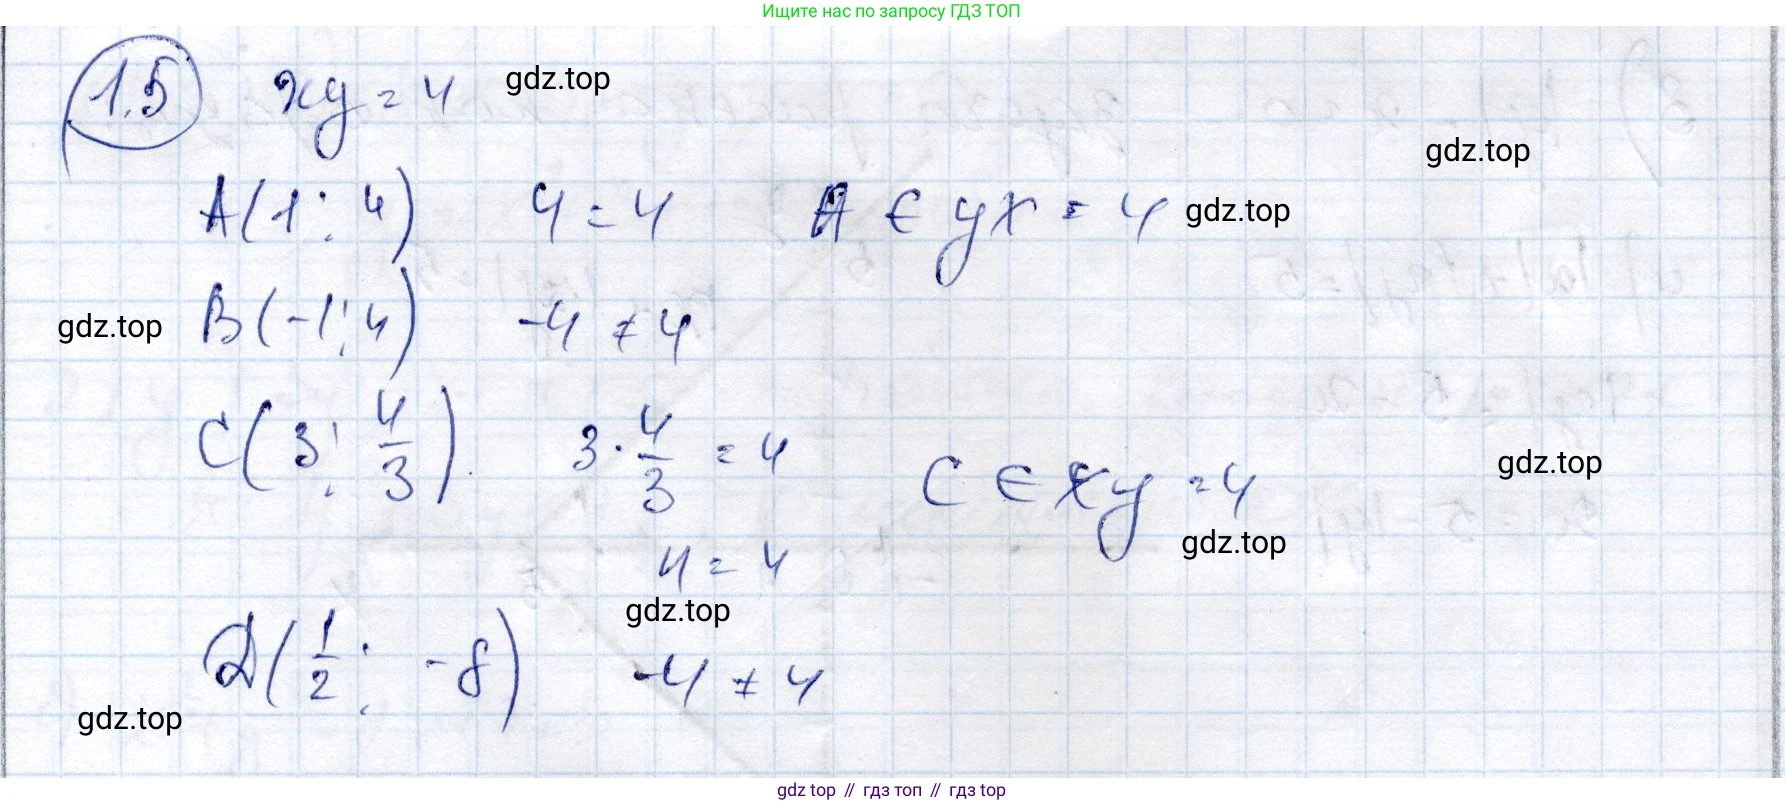 Ищите нас по запросу ГДЗ ТОП
1.5 xy = 4 gdz.top
gdz.top
A(1; 4) 4 = 4 A ∈ yx = 4 gdz.top
gdz.top B(-1; 4) -4 ≠ 4
C(3; 4/3) 3 · 4/3 = 4 C ∈ xy = 4 gdz.top
gdz.top
4 = 4
gdz.top
D(1/2; -8) -4 ≠ 4
gdz.top
gdz top // гдз топ // гдз top